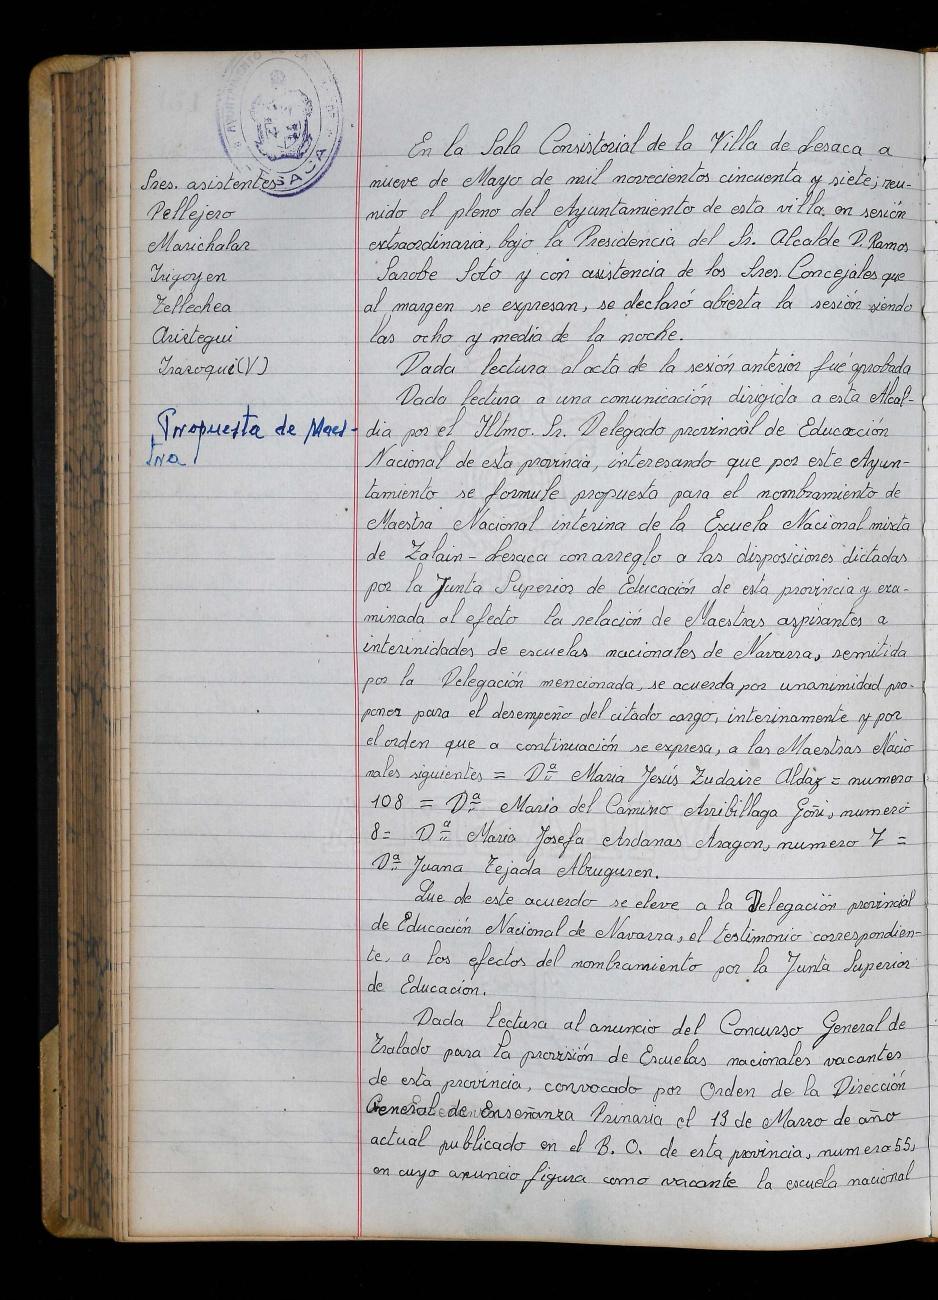 AYUNTAMIENTO DE LA
LESACA
Sres. asistentes
Pellejero
Marichalar
Irigoyen
Tellechea
Aristegui
Iraroqui (V)
Propuesta de Maes-
tra
En la Sala Consistorial de la Villa de Lesaca a
nueve de Mayo de mil novecientos cincuenta y siete; reu-
nido el pleno del Ayuntamiento de esta villa, en sesión
extraordinaria, bajo la Presidencia del Sr. Alcalde D. Ramos
Sarobe Soto y con asistencia de los Sres. Concejales que
al margen se expresan, se declaró abierta la sesión siendo
las ocho y media de la noche.
Dada lectura al acta de la sesión anterior fué aprobada
Dada lectura a una comunicación dirigida a esta Alcal-
dia por el Iltmo. Sr. Delegado provincial de Educación
Nacional de esta provincia, interesando que por este Ayun-
tamiento se formule propuesta para el nombramiento de
Maestra Nacional interina de la Escuela Nacional mixta
de Zalain-Lesaca con arreglo a las disposiciones dictadas
por la Junta Superior de Educación de esta provincia y exa-
minada al efecto la relación de Maestras aspirantes a
interinidades de escuelas nacionales de Navarra, remitida
por la Delegación mencionada, se acuerda por unanimidad pro-
poner para el desempeño del citado cargo, interinamente y por
el orden que a continuación se expresa, a las Maestras Nacio
nales siguientes = Dª Maria Jesús Zudaire Aldaz = numero
108 = Dª Maria del Camino Arribillaga Goñi, numero
8= Dª Maria Josefa Ardanas Aragon, numero 7 =
Dª Juana Tejada Abruguren.
Que de este acuerdo se eleve a la Delegación provincial
de Educación Nacional de Navarra, el testimonio correspondien-
te, a los efectos del nombramiento por la Junta Superior
de Educacion.
Dada lectura al anuncio del Concurso General de
Tralado para la provisión de Escuelas nacionales vacantes
de esta provincia, convocado por Orden de la Dirección
General de Enseñanza Primaria el 13 de Marzo de año
actual publicado en el B. O. de esta provincia, numero 55,
en cuyo anuncio figura como vacante la escuela nacional